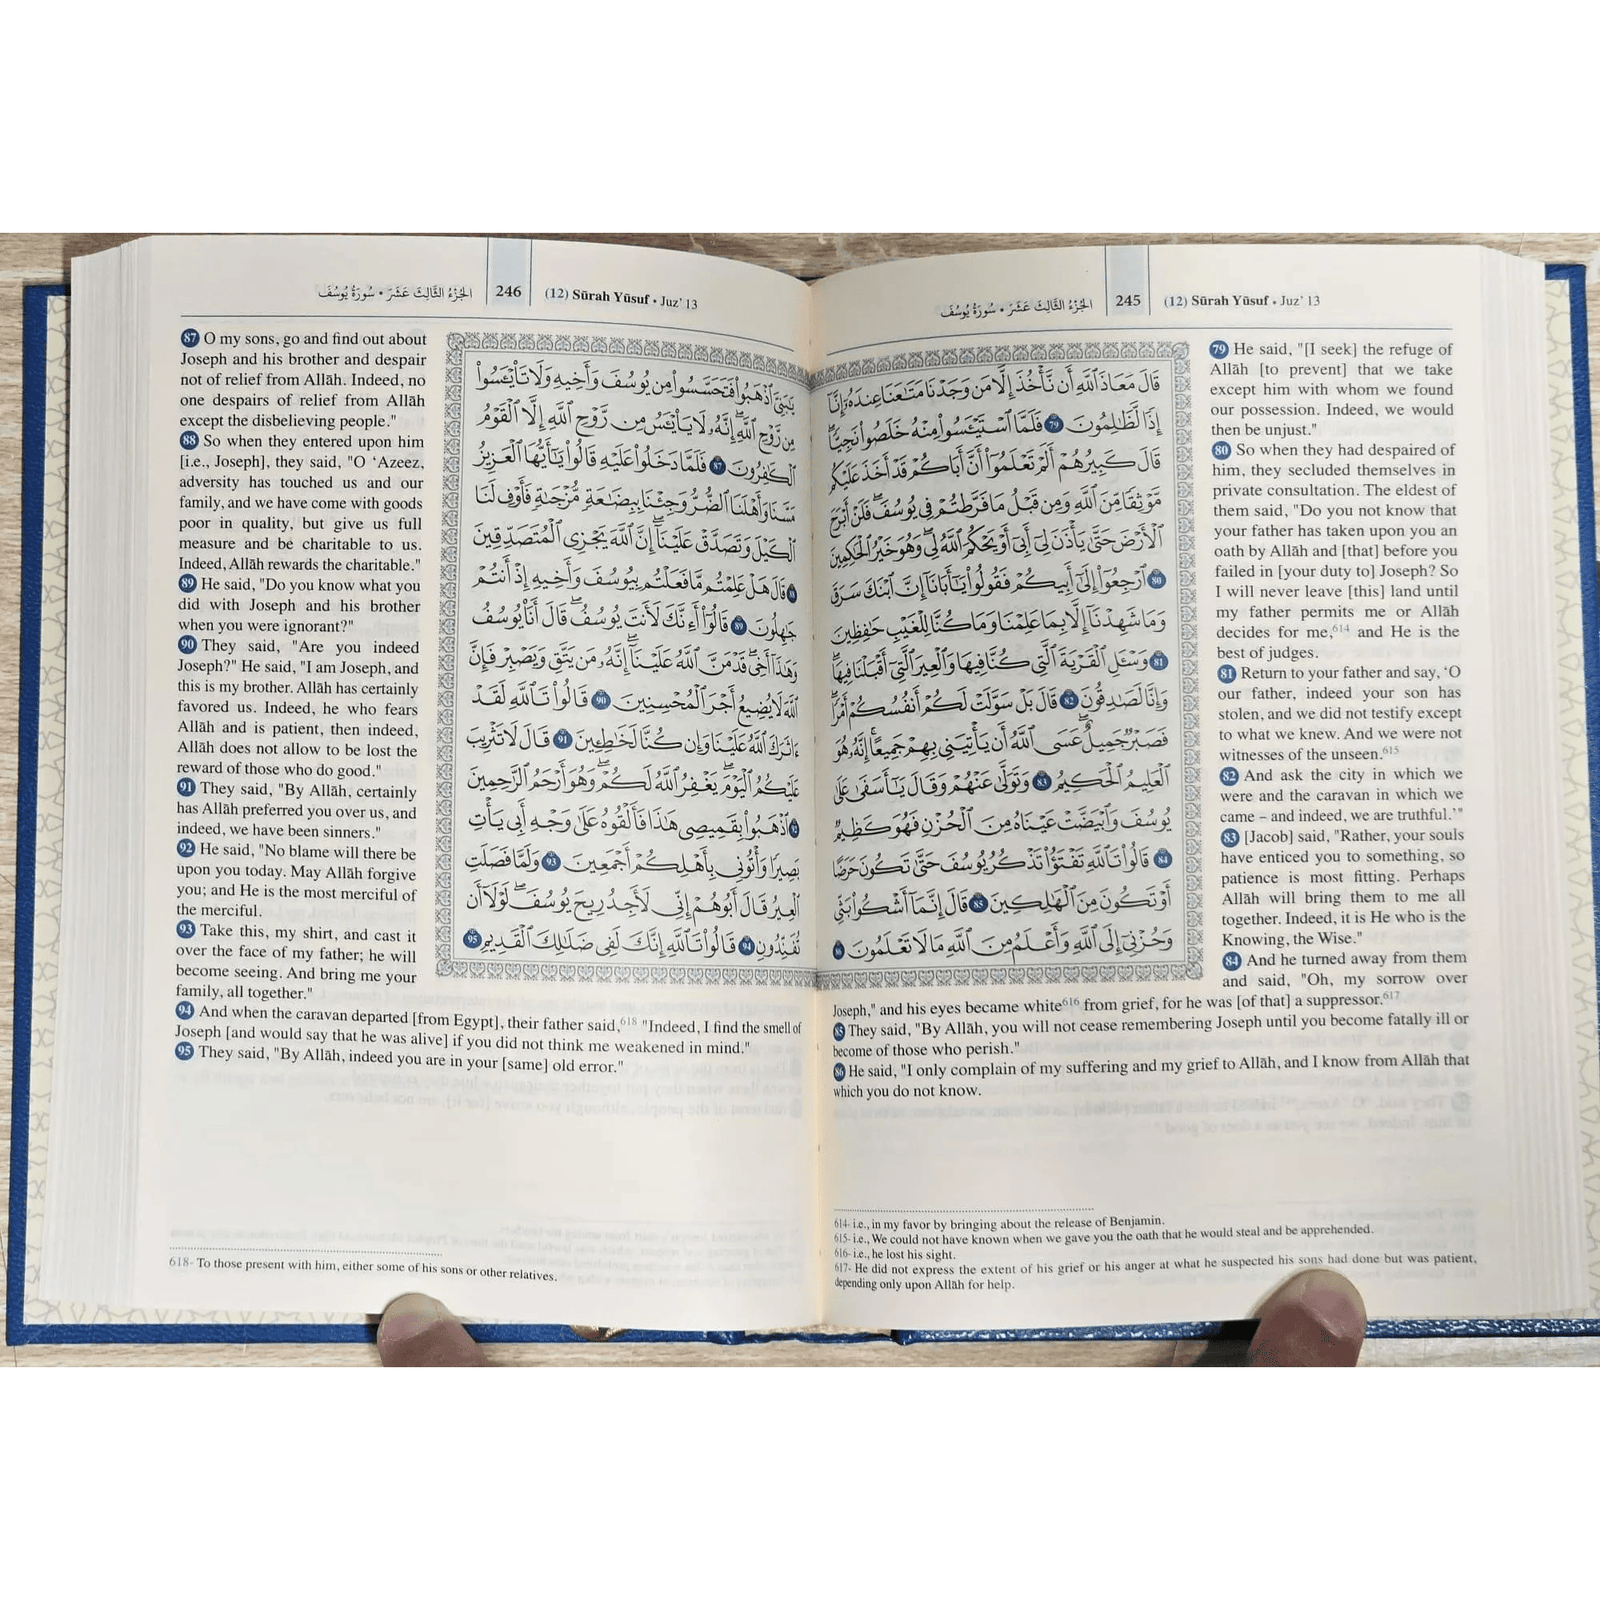 (12) Sūrah Yūsuf • Juz' 13
245
الجُزْءُ الثَّالِثَ عَشَرَ • سُورَةُ يُوسُفَ
قَالَ مَعَاذَ ٱللَّهِ أَن نَّأْخُذَ إِلَّا مَن وَجَدْنَا مَتَٰعَنَا عِندَهُۥٓ إِنَّآ
إِذًا لَّظَٰلِمُونَ 79 فَلَمَّا ٱسْتَيْـَٔسُوا۟ مِنْهُ خَلَصُوا۟ نَجِيًّا ۖ
قَالَ كَبِيرُهُمْ أَلَمْ تَعْلَمُوٓا۟ أَنَّ أَبَاكُمْ قَدْ أَخَذَ عَلَيْكُم
مَّوْثِقًا مِّنَ ٱللَّهِ وَمِن قَبْلُ مَا فَرَّطتُمْ فِى يُوسُفَ ۖ فَلَنْ أَبْرَحَ
ٱلْأَرْضَ حَتَّىٰ يَأْذَنَ لِىٓ أَبِىٓ أَوْ يَحْكُمَ ٱللَّهُ لِى ۖ وَهُوَ خَيْرُ ٱلْحَٰكِمِينَ
80 ٱرْجِعُوٓا۟ إِلَىٰٓ أَبِيكُمْ فَقُولُوا۟ يَٰٓأَبَانَآ إِنَّ ٱبْنَكَ سَرَقَ
وَمَا شَهِدْنَآ إِلَّا بِمَا عَلِمْنَا وَمَا كُنَّا لِلْغَيْبِ حَٰفِظِينَ
81 وَسْـَٔلِ ٱلْقَرْيَةَ ٱلَّتِى كُنَّا فِيهَا وَٱلْعِيرَ ٱلَّتِىٓ أَقْبَلْنَا فِيهَا ۖ
وَإِنَّا لَصَٰدِقُونَ 82 قَالَ بَلْ سَوَّلَتْ لَكُمْ أَنفُسُكُمْ أَمْرًا ۖ
فَصَبْرٌ جَمِيلٌ ۖ عَسَى ٱللَّهُ أَن يَأْتِيَنِى بِهِمْ جَمِيعًا ۚ إِنَّهُۥ هُوَ
ٱلْعَلِيمُ ٱلْحَكِيمُ 83 وَتَوَلَّىٰ عَنْهُمْ وَقَالَ يَٰٓأَسَفَىٰ عَلَىٰ
يُوسُفَ وَٱبْيَضَّتْ عَيْنَاهُ مِنَ ٱلْحُزْنِ فَهُوَ كَظِيمٌ
84 قَالُوا۟ تَٱللَّهِ تَفْتَؤُا۟ تَذْكُرُ يُوسُفَ حَتَّىٰ تَكُونَ حَرَضًا
أَوْ تَكُونَ مِنَ ٱلْهَٰلِكِينَ 85 قَالَ إِنَّمَآ أَشْكُوا۟ بَثِّى
وَحُزْنِىٓ إِلَى ٱللَّهِ وَأَعْلَمُ مِنَ ٱللَّهِ مَا لَا تَعْلَمُونَ 86
79 He said, "[I seek] the refuge of
Allāh [to prevent] that we take
except him with whom we found
our possession. Indeed, we would
then be unjust."
80 So when they had despaired of
him, they secluded themselves in
private consultation. The eldest of
them said, "Do you not know that
your father has taken upon you an
oath by Allāh and [that] before you
failed in [your duty to] Joseph? So
I will never leave [this] land until
my father permits me or Allāh
decides for me,614 and He is the
best of judges.
81 Return to your father and say, ‘O
our father, indeed your son has
stolen, and we did not testify except
to what we knew. And we were not
witnesses of the unseen.615
82 And ask the city in which we
were and the caravan in which we
came – and indeed, we are truthful.’"
83 [Jacob] said, "Rather, your souls
have enticed you to something, so
patience is most fitting. Perhaps
Allāh will bring them to me all
together. Indeed, it is He who is the
Knowing, the Wise."
84 And he turned away from them
and said, "Oh, my sorrow over
Joseph," and his eyes became white616 from grief, for he was [of that] a suppressor.617
85 They said, "By Allāh, you will not cease remembering Joseph until you become fatally ill or
become of those who perish."
86 He said, "I only complain of my suffering and my grief to Allāh, and I know from Allāh that
which you do not know.
614- i.e., in my favor by bringing about the release of Benjamin.
615- i.e., We could not have known when we gave you the oath that he would steal and be apprehended.
616- i.e., he lost his sight.
617- He did not express the extent of his grief or his anger at what he suspected his sons had done but was patient,
depending only upon Allāh for help.
(12) Sūrah Yūsuf • Juz' 13
246
الجُزْءُ الثَّالِثَ عَشَرَ • سُورَةُ يُوسُفَ
يَٰبَنِىَّ ٱذْهَبُوا۟ فَتَحَسَّسُوا۟ مِن يُوسُفَ وَأَخِيهِ وَلَا تَا۟يْـَٔسُوا۟
مِن رَّوْحِ ٱللَّهِ ۖ إِنَّهُۥ لَا يَا۟يْـَٔسُ مِن رَّوْحِ ٱللَّهِ إِلَّا ٱلْقَوْمُ
ٱلْكَٰفِرُونَ 87 فَلَمَّا دَخَلُوا۟ عَلَيْهِ قَالُوا۟ يَٰٓأَيُّهَا ٱلْعَزِيزُ
مَسَّنَا وَأَهْلَنَا ٱلضُّرُّ وَجِئْنَا بِبِضَٰعَةٍ مُّزْجَىٰةٍ فَأَوْفِ لَنَا
ٱلْكَيْلَ وَتَصَدَّقْ عَلَيْنَآ ۖ إِنَّ ٱللَّهَ يَجْزِى ٱلْمُتَصَدِّقِينَ
88 قَالَ هَلْ عَلِمْتُم مَّا فَعَلْتُم بِيُوسُفَ وَأَخِيهِ إِذْ أَنتُمْ
جَٰهِلُونَ 89 قَالُوٓا۟ أَءِنَّكَ لَأَنتَ يُوسُفُ ۖ قَالَ أَنَا۠ يُوسُفُ
وَهَٰذَآ أَخِى ۖ قَدْ مَنَّ ٱللَّهُ عَلَيْنَآ ۖ إِنَّهُۥ مَن يَتَّقِ وَيَصْبِرْ فَإِنَّ
ٱللَّهَ لَا يُضِيعُ أَجْرَ ٱلْمُحْسِنِينَ 90 قَالُوا۟ تَٱللَّهِ لَقَدْ
ءَاثَرَكَ ٱللَّهُ عَلَيْنَا وَإِن كُنَّا لَخَٰطِـِٔينَ 91 قَالَ لَا تَثْرِيبَ
عَلَيْكُمُ ٱلْيَوْمَ ۖ يَغْفِرُ ٱللَّهُ لَكُمْ ۖ وَهُوَ أَرْحَمُ ٱلرَّٰحِمِينَ
92 ٱذْهَبُوا۟ بِقَمِيصِى هَٰذَا فَأَلْقُوهُ عَلَىٰ وَجْهِ أَبِى يَأْتِ
بَصِيرًا وَأْتُونِى بِأَهْلِكُمْ أَجْمَعِينَ 93 وَلَمَّا فَصَلَتِ
ٱلْعِيرُ قَالَ أَبُوهُمْ إِنِّى لَأَجِدُ رِيحَ يُوسُفَ ۖ لَوْلَآ أَن
تُفَنِّدُونِ 94 قَالُوا۟ تَٱللَّهِ إِنَّكَ لَفِى ضَلَٰلِكَ ٱلْقَدِيمِ 95
87 O my sons, go and find out about
Joseph and his brother and despair
not of relief from Allāh. Indeed, no
one despairs of relief from Allāh
except the disbelieving people."
88 So when they entered upon him
[i.e., Joseph], they said, "O ‘Azeez,
adversity has touched us and our
family, and we have come with goods
poor in quality, but give us full
measure and be charitable to us.
Indeed, Allāh rewards the charitable."
89 He said, "Do you know what you
did with Joseph and his brother
when you were ignorant?"
90 They said, "Are you indeed
Joseph?" He said, "I am Joseph, and
this is my brother. Allāh has certainly
favored us. Indeed, he who fears
Allāh and is patient, then indeed,
Allāh does not allow to be lost the
reward of those who do good."
91 They said, "By Allāh, certainly
has Allāh preferred you over us, and
indeed, we have been sinners."
92 He said, "No blame will there be
upon you today. May Allāh forgive
you; and He is the most merciful of
the merciful.
93 Take this, my shirt, and cast it
over the face of my father; he will
become seeing. And bring me your
family, all together."
94 And when the caravan departed [from Egypt], their father said,618 "Indeed, I find the smell of
Joseph [and would say that he was alive] if you did not think me weakened in mind."
95 They said, "By Allāh, indeed you are in your [same] old error."
618- To those present with him, either some of his sons or other relatives.